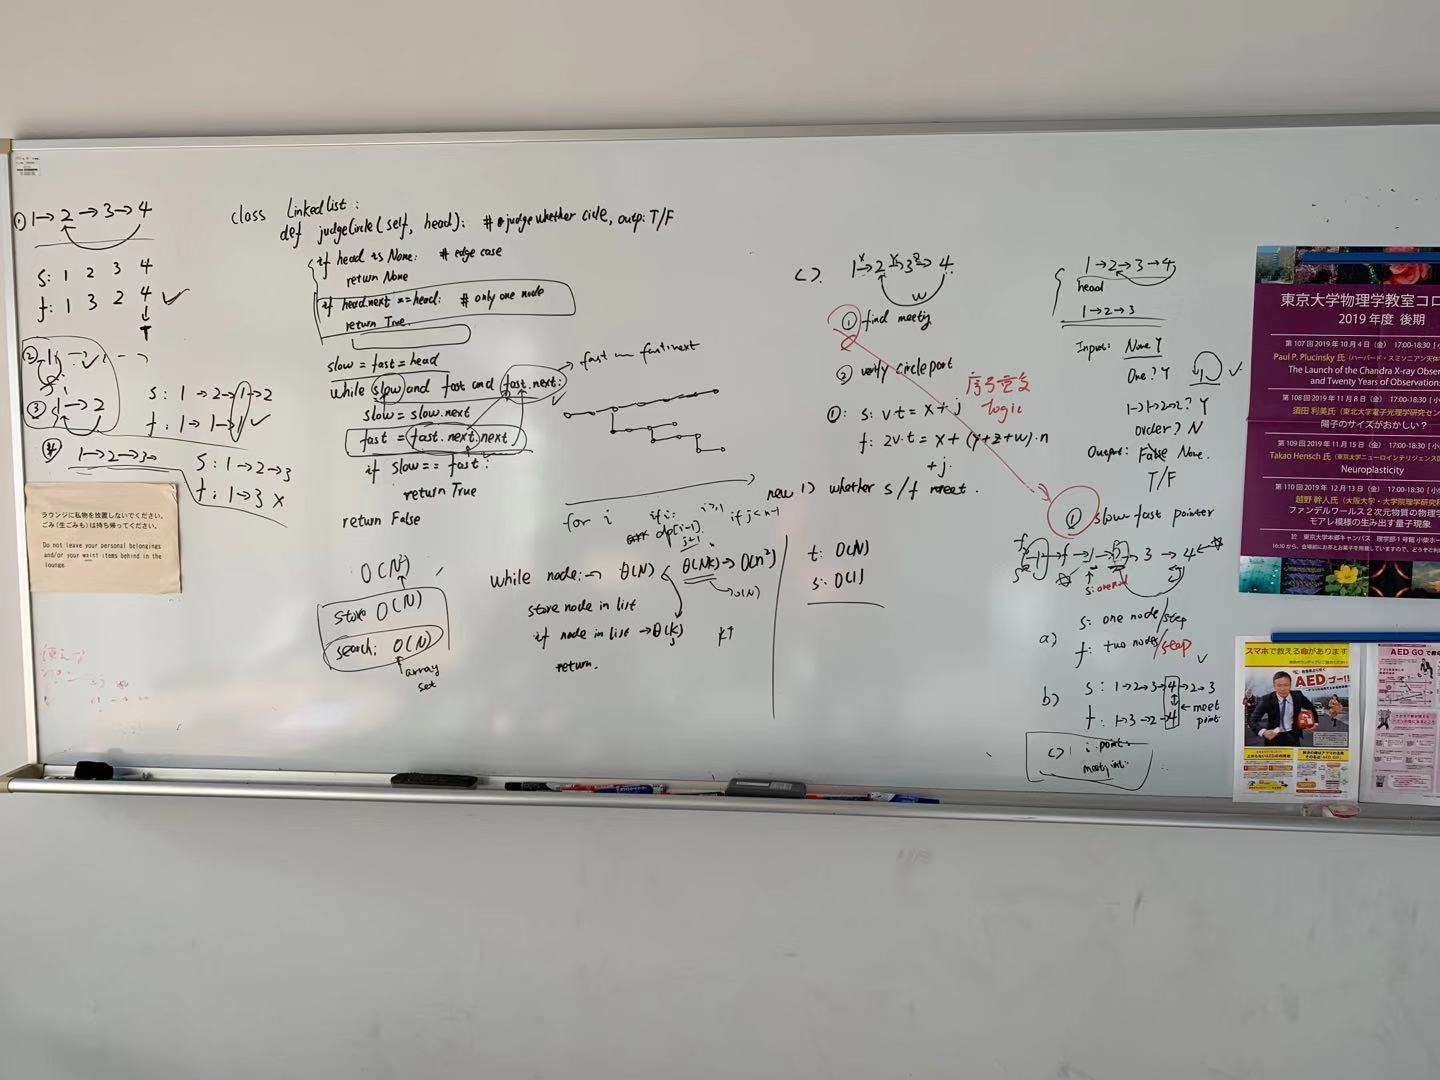 ① 1→2→3→4
s: 1 2 3 4
f: 1 3 2 4 ✓
↓
T
②
③ 1→2
s: 1→2→1→2
f: 1→1→1 ✓
④ 1→2→3→
s: 1→2→3
f: 1→3 ×
ラウンジに私物を放置しないでください。
ごみ(生ごみも)は持ち帰ってください。
Do not leave your personal belongings
and/or your waist items behind in the
lounge.
class Linkedlist:
def judgeCircle(self, head): # judge whether circle, output: T/F
if head is None: # edge case
return None
if head.next == head: # only one node
return True
slow = fast = head
while slow and fast and fast.next:
slow = slow.next
fast = fast.next.next
if slow == fast:
return True
return False
→ fast fast.next
for i if i: i>1 if j<n-1
dp[i-1]
j+1
O(N²)
store O(N)
search: O(N)
array
set
while node: → θ(N) θ(Nk) → O(n²)
→ O(N)
store node in list
if node in list → θ(k) k↑
return.
c). 1→2→3→4
w
① find meeting
② verify circle point
①: s: vt = x + j
f: 2v·t = x + (y+z+w)·n
+ j.
new 1) whether s/f meet.
logic
t: O(N)
s: O(1)
1→2→3→4
head
1→2→3
Input: None Y
One? Y 1 ✓
1→1→2→2? Y
order? N
Output: False None.
T/F
① slow fast pointer
1→1→2→3→4
s: one node
a) s: one node/step
f: two nodes/step ✓
b) s: 1→2→3→4→2→3
f: 1→3→2→4
← meet
point
c) i point
東京大学物理学教室コロ
2019 年度 後期
第 107 回 2019 年 10 月 4 日(金) 17:00-18:30
Paul P. Plucinsky 氏(ハーバード・スミソニアン天体
The Launch of the Chandra X-ray Obser
and Twenty Years of Observations
第 108 回 2019 年 11 月 8 日(金) 17:00-18:30
須田 利美氏(東北大学電子光理学研究セン
陽子のサイズがおかしい?
第 109 回 2019 年 11 月 15 日(金) 17:00-18:30
Takao Hensch 氏(東京大学ニューロインテリジェンス国
Neuroplasticity
第 110 回 2019 年 12 月 13 日(金) 17:00-18:30
越野 幹人氏(大阪大学・大学院理学研究
ファンデルワールス2次元物質の物理学
モアレ模様の生み出す量子現象
於 東京大学本郷キャンパス 理学部1号館 小柴ホー
スマホで救える命があります
AED ゴー!!
AED GO で救